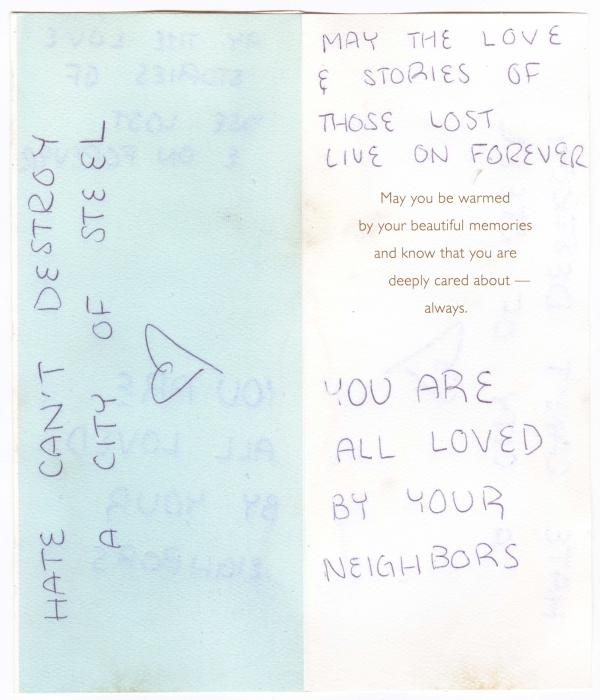 HATE CAN'T DESTROY
A CITY OF STEEL
MAY THE LOVE
& STORIES OF
THOSE LOST
LIVE ON FOREVER
May you be warmed
by your beautiful memories
and know that you are
deeply cared about —
always.
YOU ARE
ALL LOVED
BY YOUR
NEIGHBORS